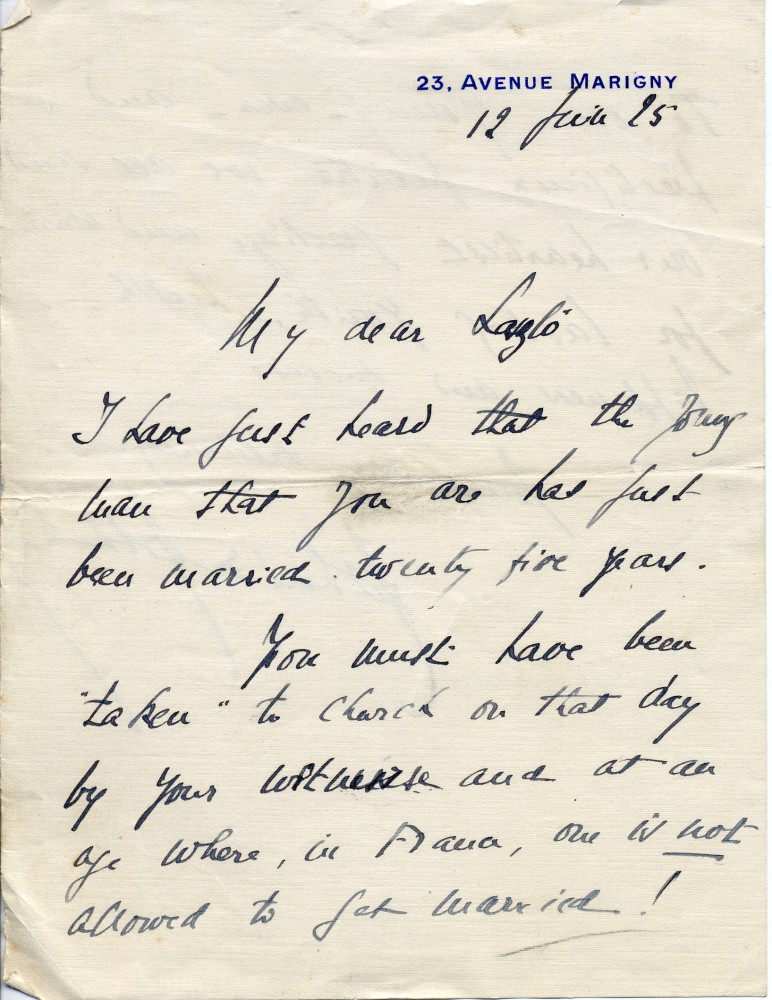 23, AVENUE MARIGNY
12 Juin 25
My dear Laszló
I have just heard that the young
man that you are has just
been married twenty five years.
You must have been
"taken" to church on that day
by your and at an
age where, in France, one is not
allowed to get married!